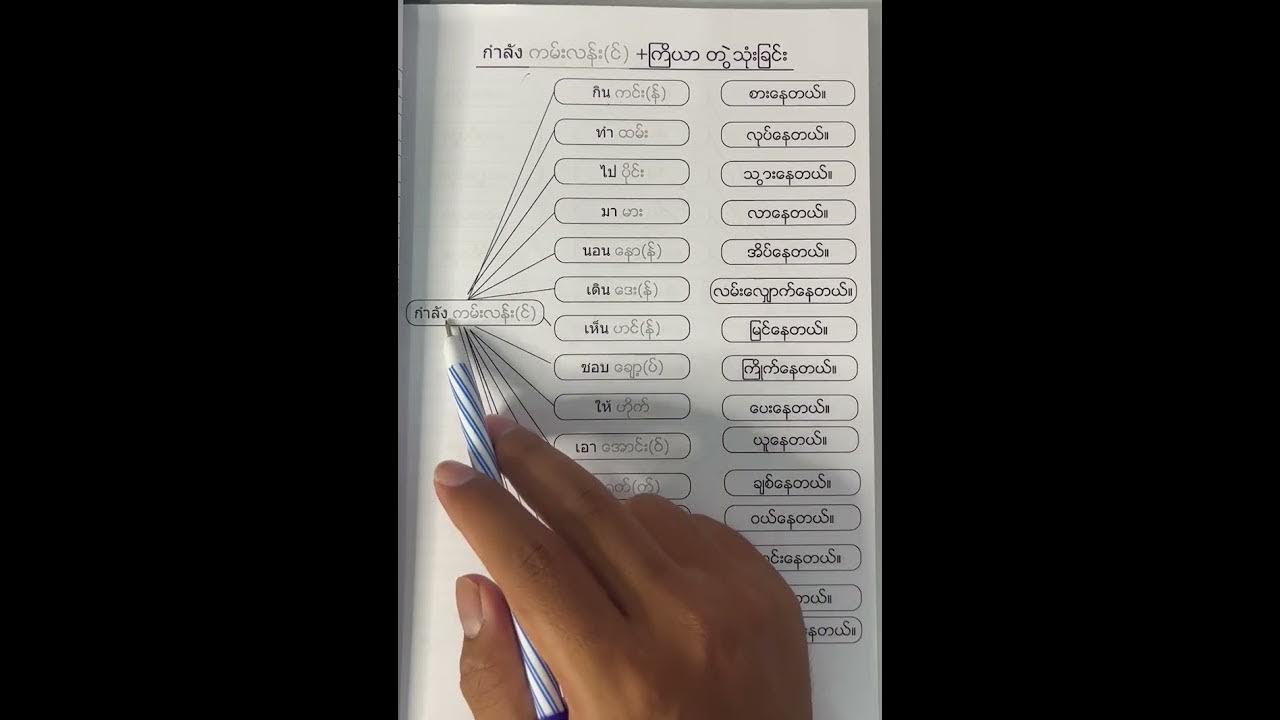 กำลัง ကမ်းလန်း(င်) +ကြိယာ တွဲသုံးခြင်း
กิน ကင်း(န်) စားနေတယ်။
ทำ ထမ်း လုပ်နေတယ်။
ไป ပိုင်း သွားနေတယ်။
มา မား လာနေတယ်။
นอน နော(န်) အိပ်နေတယ်။
เดิน ဒေး(န်) လမ်းလျှောက်နေတယ်။
กำลัง ကမ်းလန်း(င်)
เห็น ဟင်(န်) မြင်နေတယ်။
ชอบ ချော့(ပ်) ကြိုက်နေတယ်။
ให้ ဟိုက် ပေးနေတယ်။
เอา အောင်း(ဝ်) ယူနေတယ်။
(က်) ချစ်နေတယ်။
ဝယ်နေတယ်။
နေတယ်။
တယ်။
နေတယ်။